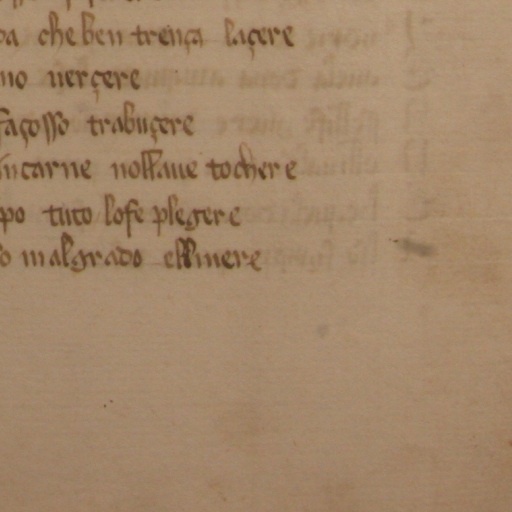 da che ben trença laçere
no uerçere
façosso trabuçere
in carne nollaue tochere
po tuto lo fe plegere
o malgrado ellmere